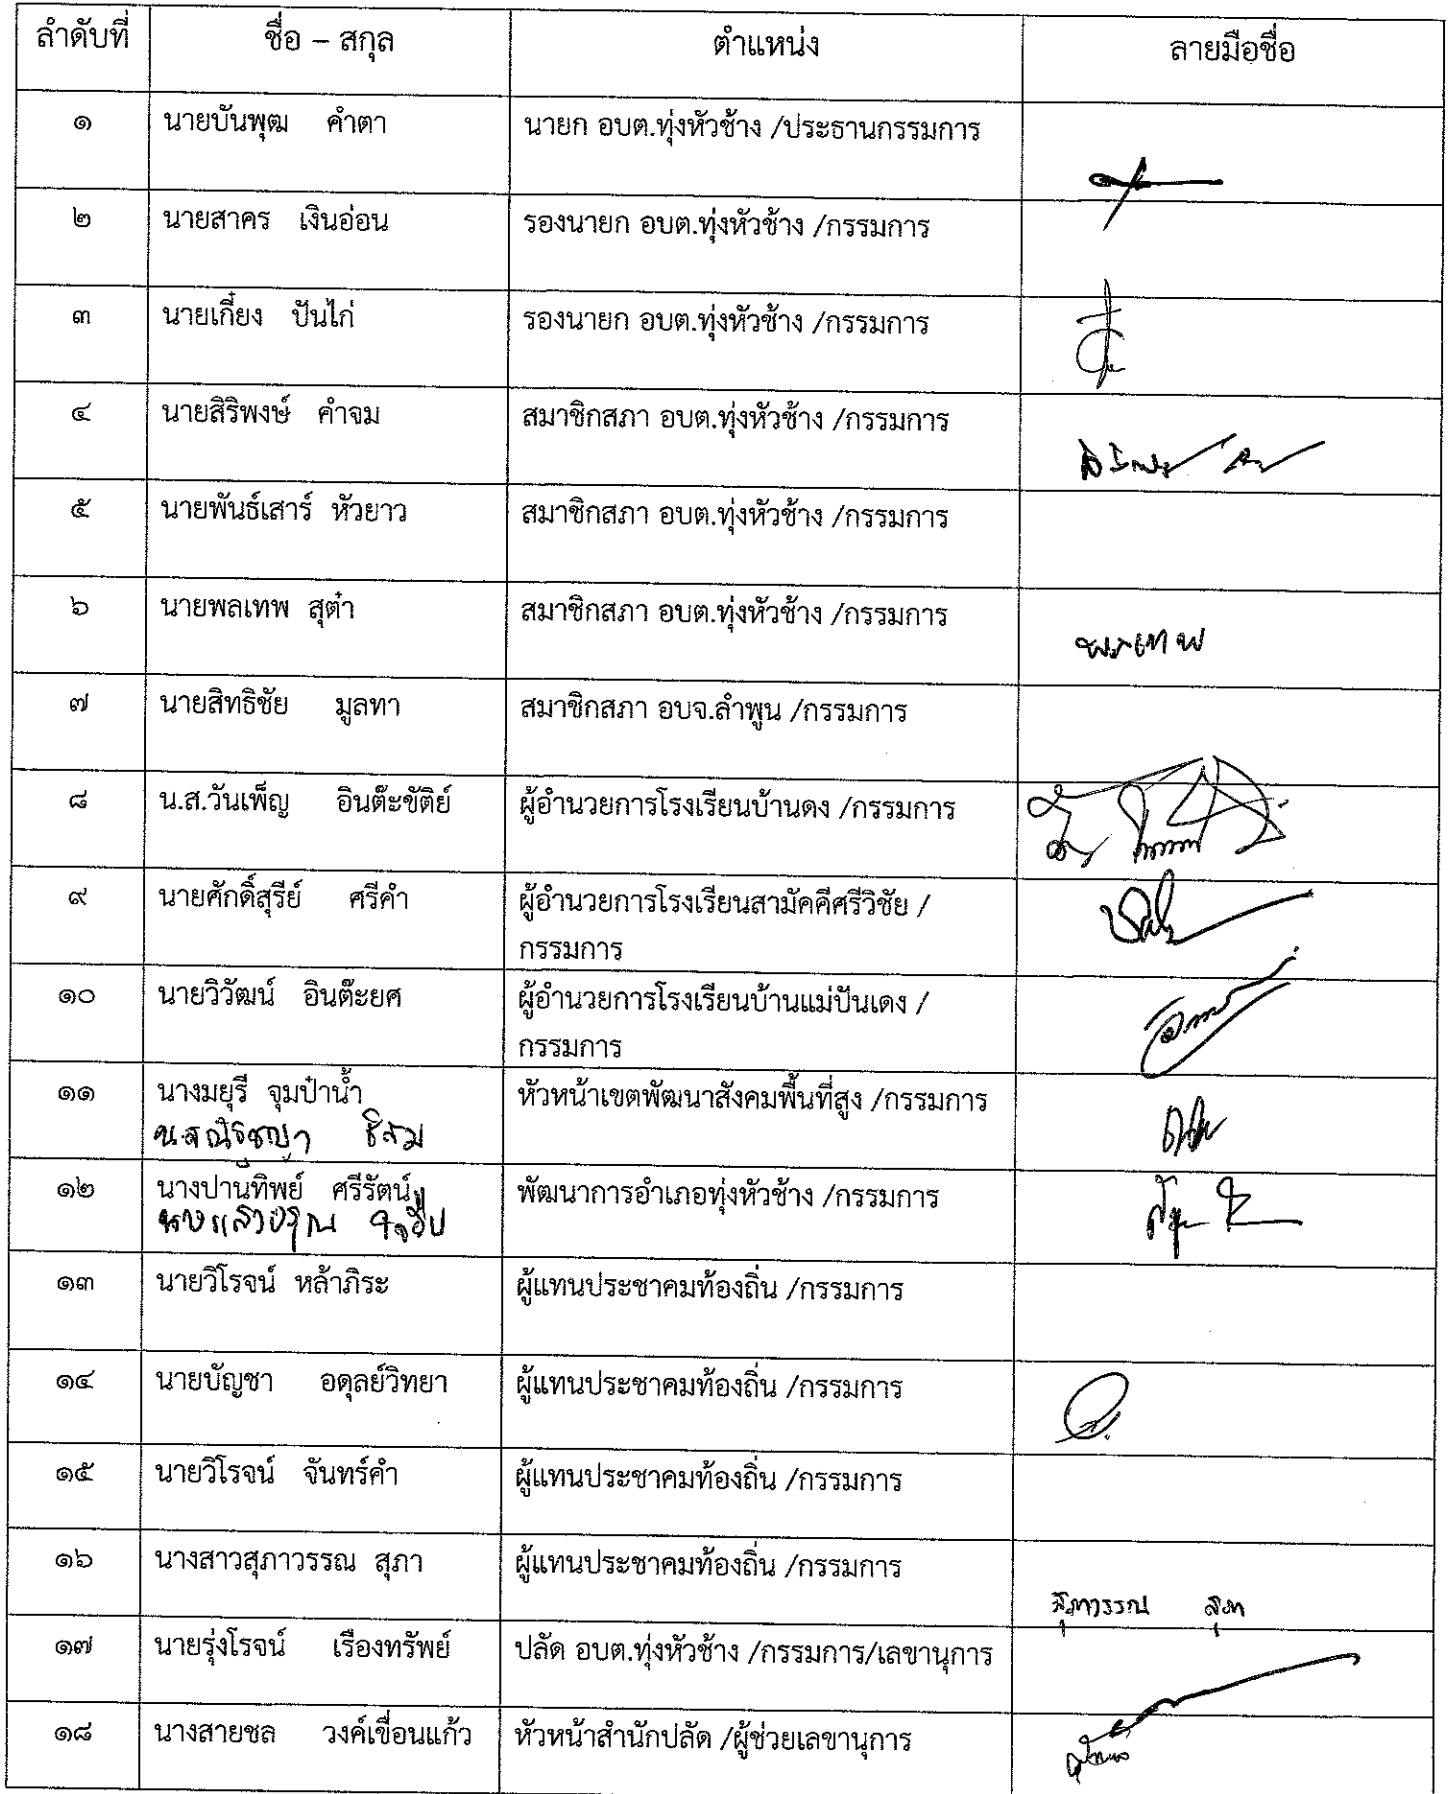 ลำดับที่ ชื่อ – สกุล ตำแหน่ง ลายมือชื่อ
๑ นายบันพุฒ คำตา นายก อบต.ทุ่งหัวช้าง /ประธานกรรมการ
๒ นายสาคร เงินอ่อน รองนายก อบต.ทุ่งหัวช้าง /กรรมการ
๓ นายเกี๋ยง ปันไก่ รองนายก อบต.ทุ่งหัวช้าง /กรรมการ
๔ นายสิริพงษ์ คำจม สมาชิกสภา อบต.ทุ่งหัวช้าง /กรรมการ
๕ นายพันธ์เสาร์ หัวยาว สมาชิกสภา อบต.ทุ่งหัวช้าง /กรรมการ
๖ นายพลเทพ สุต๋า สมาชิกสภา อบต.ทุ่งหัวช้าง /กรรมการ
พลเทพ
๗ นายสิทธิชัย มูลทา สมาชิกสภา อบจ.ลำพูน /กรรมการ
๘ น.ส.วันเพ็ญ อินต๊ะขัติย์ ผู้อำนวยการโรงเรียนบ้านดง /กรรมการ
๙ นายศักดิ์สุรีย์ ศรีคำ ผู้อำนวยการโรงเรียนสามัคคีศรีวิชัย /
กรรมการ
๑๐ นายวิวัฒน์ อินต๊ะยศ ผู้อำนวยการโรงเรียนบ้านแม่ปันเดง /
กรรมการ
๑๑ นางมยุรี จุมป๋าน้ำ หัวหน้าเขตพัฒนาสังคมพื้นที่สูง /กรรมการ
๑๒ นางปานทิพย์ ศรีรัตน์ พัฒนาการอำเภอทุ่งหัวช้าง /กรรมการ
๑๓ นายวิโรจน์ หล้าภิระ ผู้แทนประชาคมท้องถิ่น /กรรมการ
๑๔ นายบัญชา อดุลย์วิทยา ผู้แทนประชาคมท้องถิ่น /กรรมการ
๑๕ นายวิโรจน์ จันทร์คำ ผู้แทนประชาคมท้องถิ่น /กรรมการ
๑๖ นางสาวสุภาวรรณ สุภา ผู้แทนประชาคมท้องถิ่น /กรรมการ
สุภาวรรณ สุภา
๑๗ นายรุ่งโรจน์ เรืองทรัพย์ ปลัด อบต.ทุ่งหัวช้าง /กรรมการ/เลขานุการ
๑๘ นางสายชล วงค์เขื่อนแก้ว หัวหน้าสำนักปลัด /ผู้ช่วยเลขานุการ